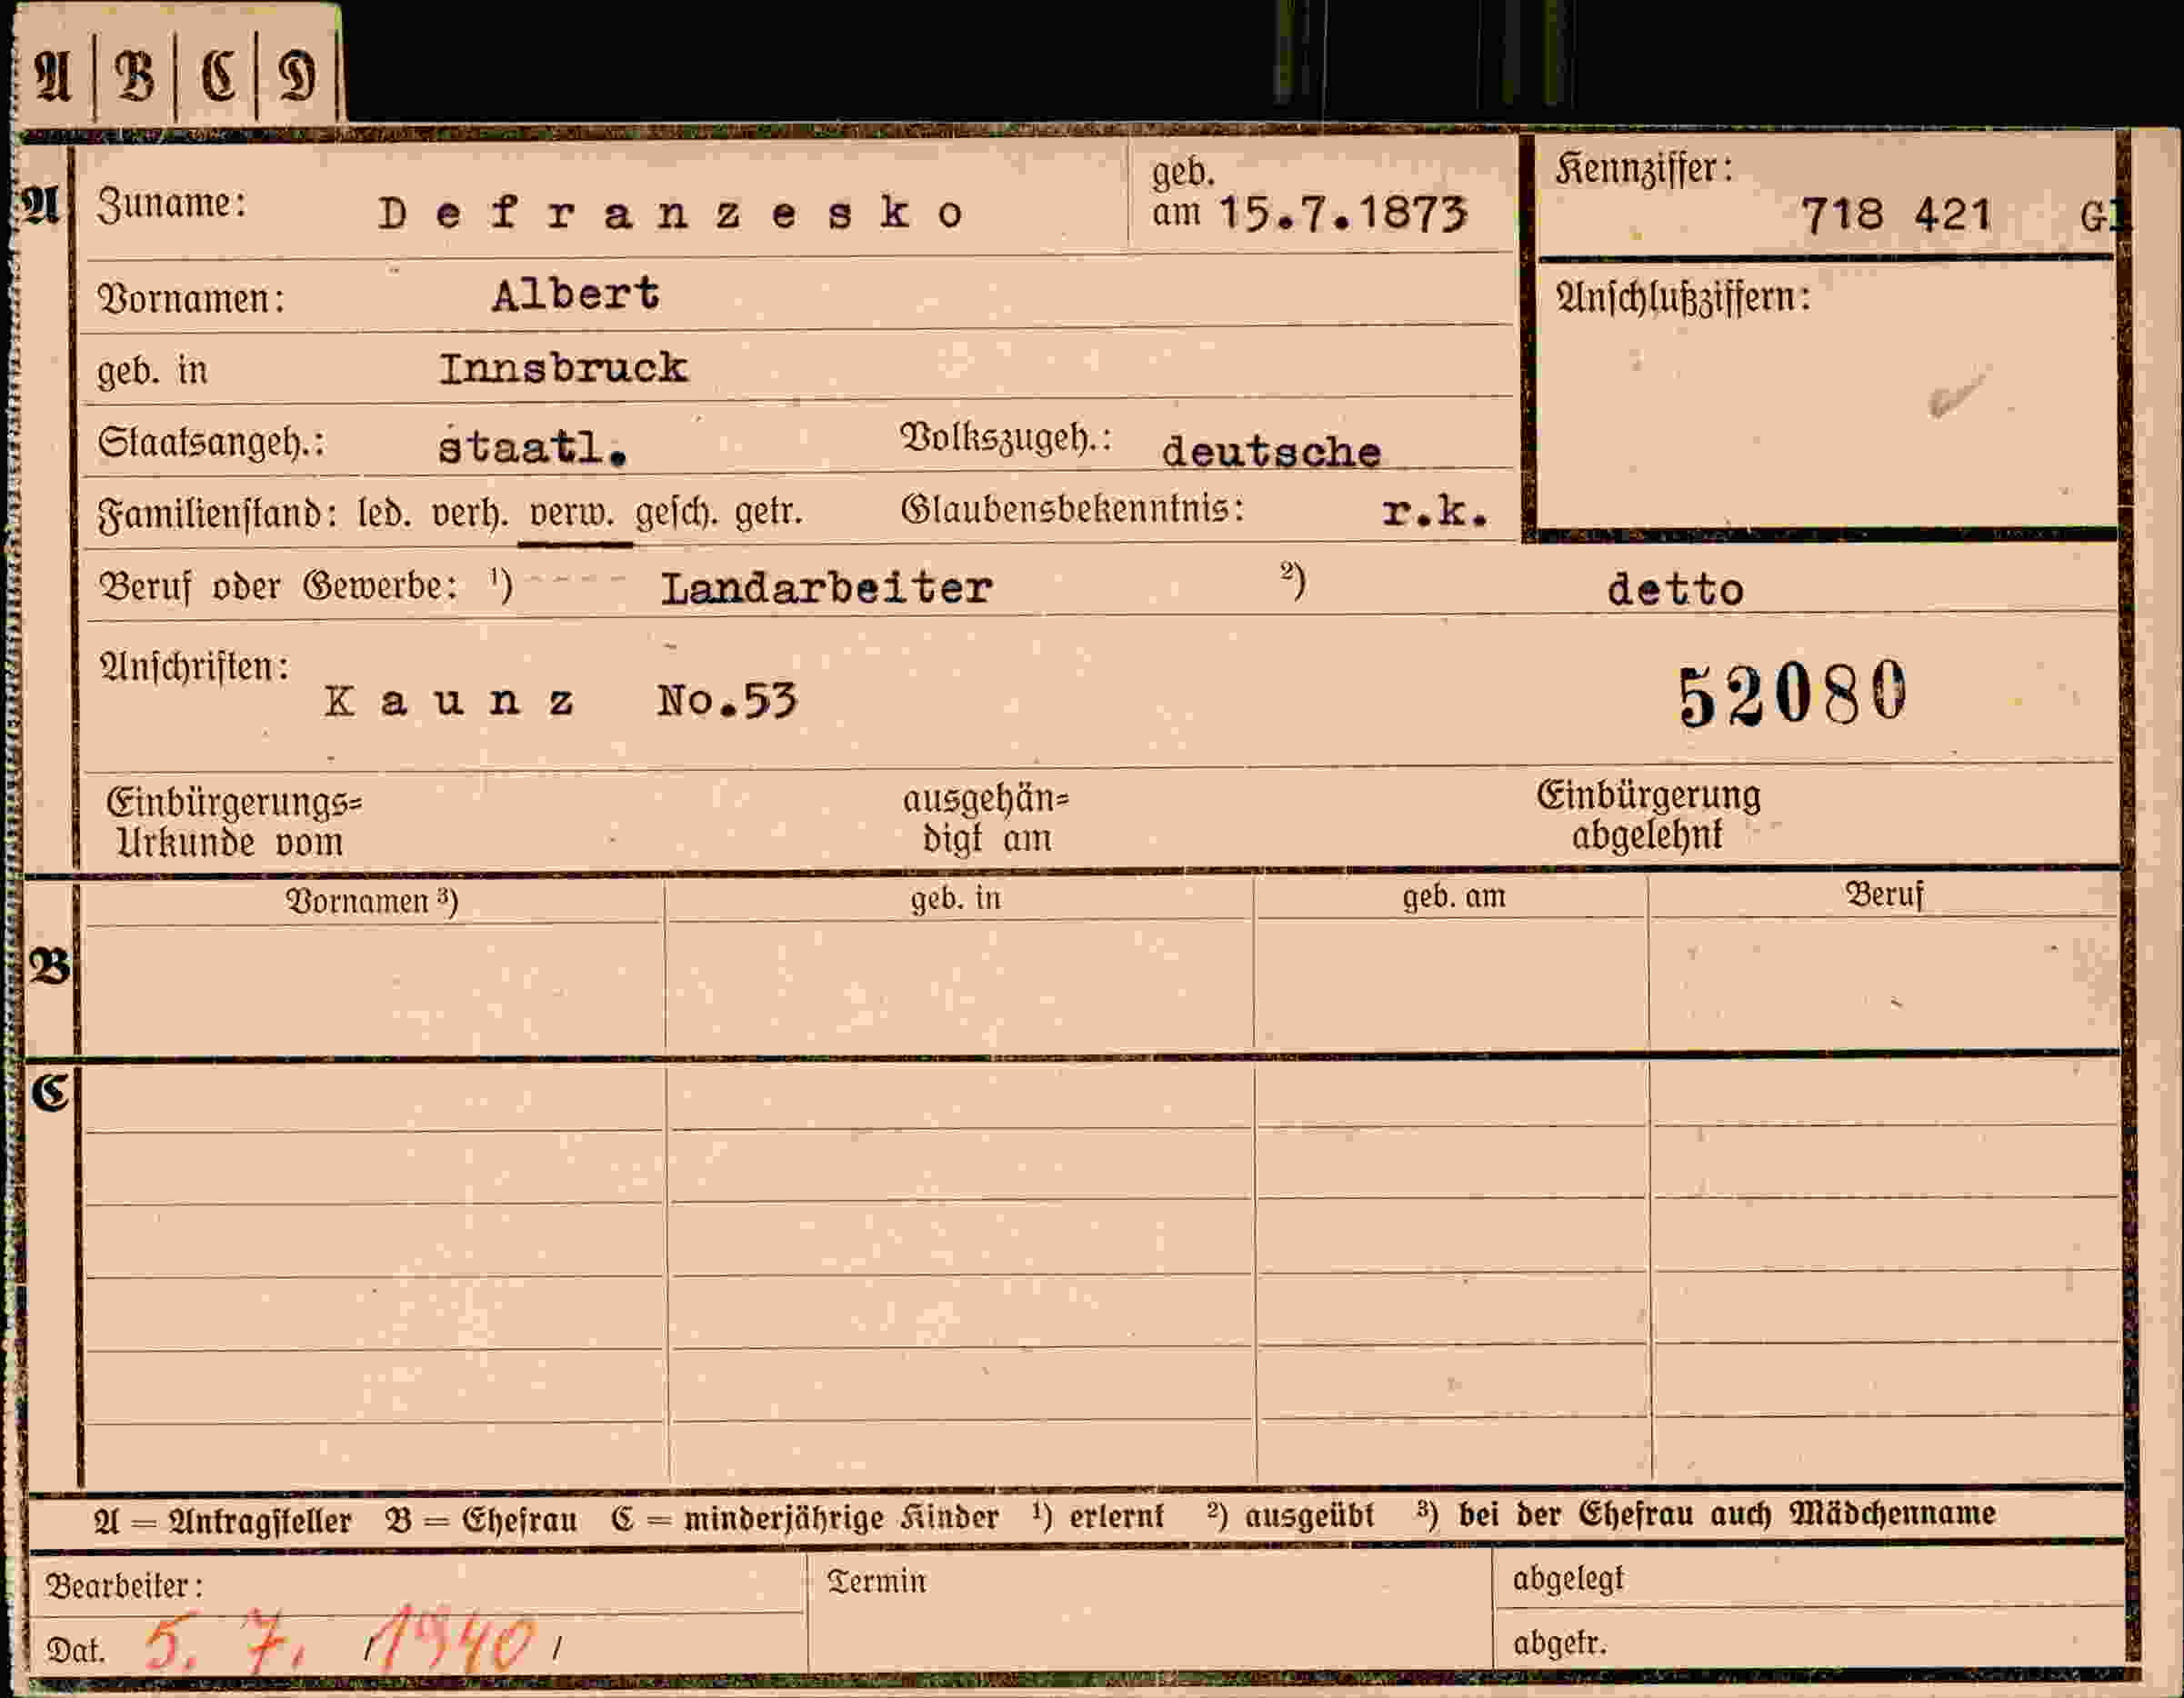 A | B | C | D
A Zuname: Defranzesko geb. am 15.7.1873
Kennziffer: 718 421 Gl
Vornamen: Albert
Anschlußziffern:
geb. in Innsbruck
Staatsangeh.: staatl. Volkszugeh.: deutsche
Familienstand: led. verh. verw. gesch. getr. Glaubensbekenntnis: r.k.
Beruf oder Gewerbe: ¹) ---- Landarbeiter ²) detto
Anschriften: Kaunz No.53 52080
Einbürgerungs= ausgehän= Einbürgerung
Urkunde vom digt am abgelehnt
Vornamen ³) geb. in geb. am Beruf
B
C
A = Antragsteller B = Ehefrau C = minderjährige Kinder ¹) erlernt ²) ausgeübt ³) bei der Ehefrau auch Mädchenname
Bearbeiter: Termin abgelegt
Dat. 5. 7. /1940/ abgetr.